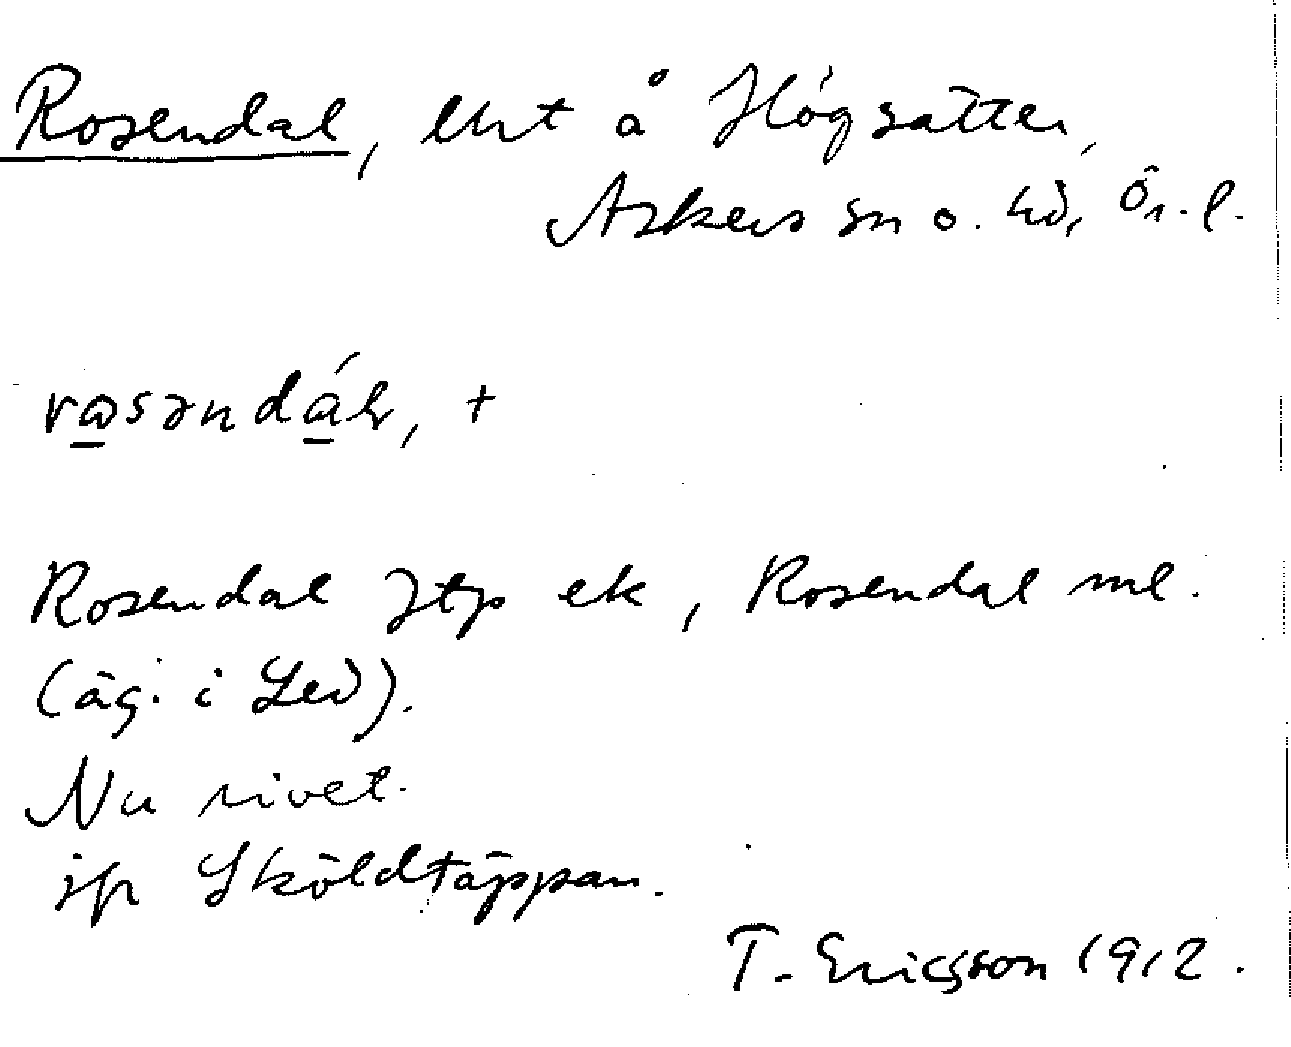 Rosendal, lht å Högsätter,
Askers sn o. hd, Ör. l.
rosəndáls, +
Rosendal Jtp ek, Rosendal ml.
(äg. i Led).
Nu rivet.
jfr Sköldtäppan.
T. Ericsson 1912.